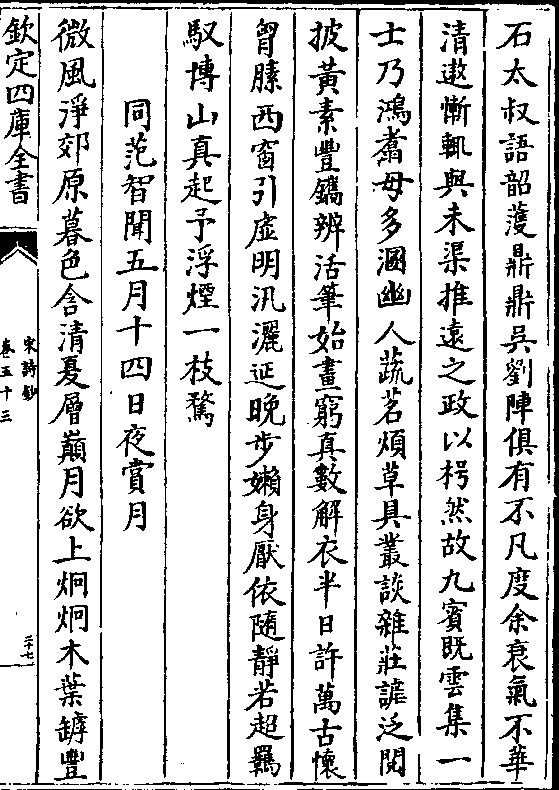 石太叔語韶䕶鼎鼎吳劉陣俱有不凡度余衰氣不華
清遨慚輒與未渠推遠之政以枵然故九賓既雲集一
士乃鴻翥毋多溷幽人蔬茗煩草具叢談雜莊諧泛閱
披黃素豐鐫辨活筆始畫窮真數解衣半日許萬古懷
胷膆西窗引虛明汛灑延晚步嬾身厭依隨靜若超羈
馭博山真起予浮煙一枝騖
同范智聞五月十四日夜賞月
微風淨郊原暮色含清夏層巔月欲上炯炯木葉罅豐
欽定四庫全書
宋詩鈔
卷五十三
二十七